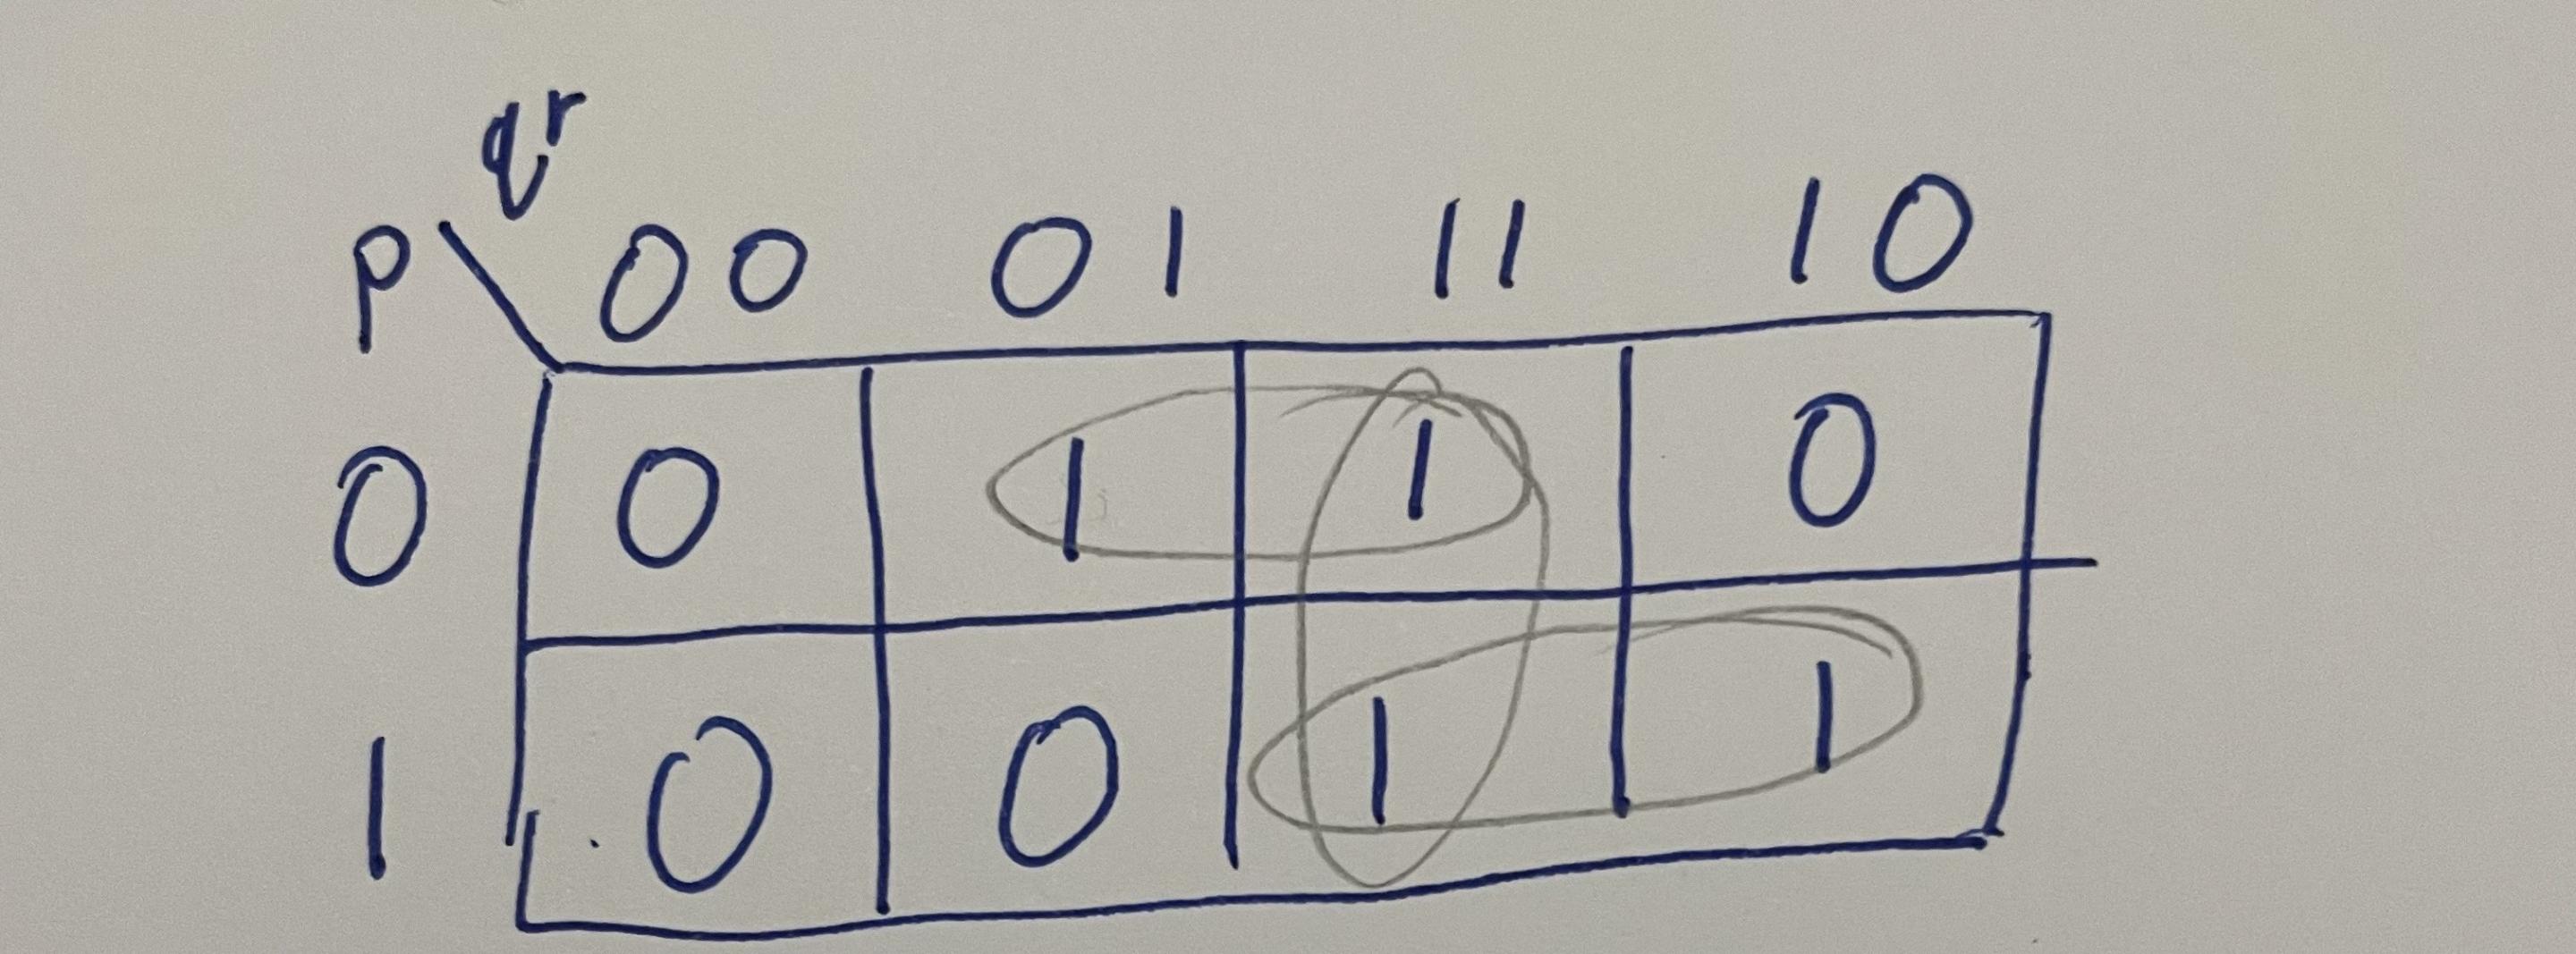 qr
P \ 00 01 11 10
0 0 1 1 0
1 0 0 1 1